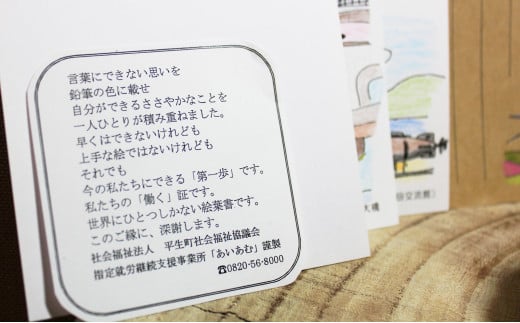 言葉にできない思いを
鉛筆の色に載せ
自分ができるささやかなことを
一人ひとりが積み重ねました。
早くはできないけれども
上手な絵ではないけれども
それでも
今の私たちにできる「第一歩」です。
私たちの「働く」証です。
世界にひとつしかない絵葉書です。
このご縁に、深謝します。
社会福祉法人 平生町社会福祉協議会
指定就労継続支援事業所「あいあむ」謹製
☎0820-56-8000
大橋
交流館）